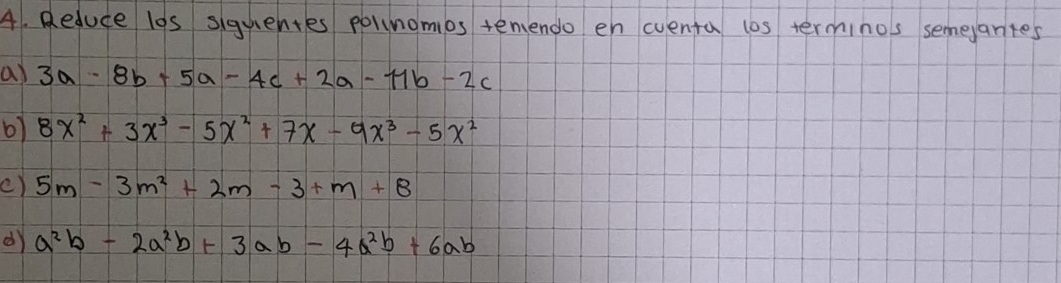 4. Reduce los siguientes polinomios teniendo en cuenta los terminos semejantes
a) 3a - 8b + 5a - 4c + 2a - 11b - 2c
b) 8x² + 3x³ - 5x² + 7x - 9x³ - 5x²
c) 5m - 3m² + 2m - 3 + m + 8
d) a²b - 2a²b + 3ab - 4a²b + 6ab